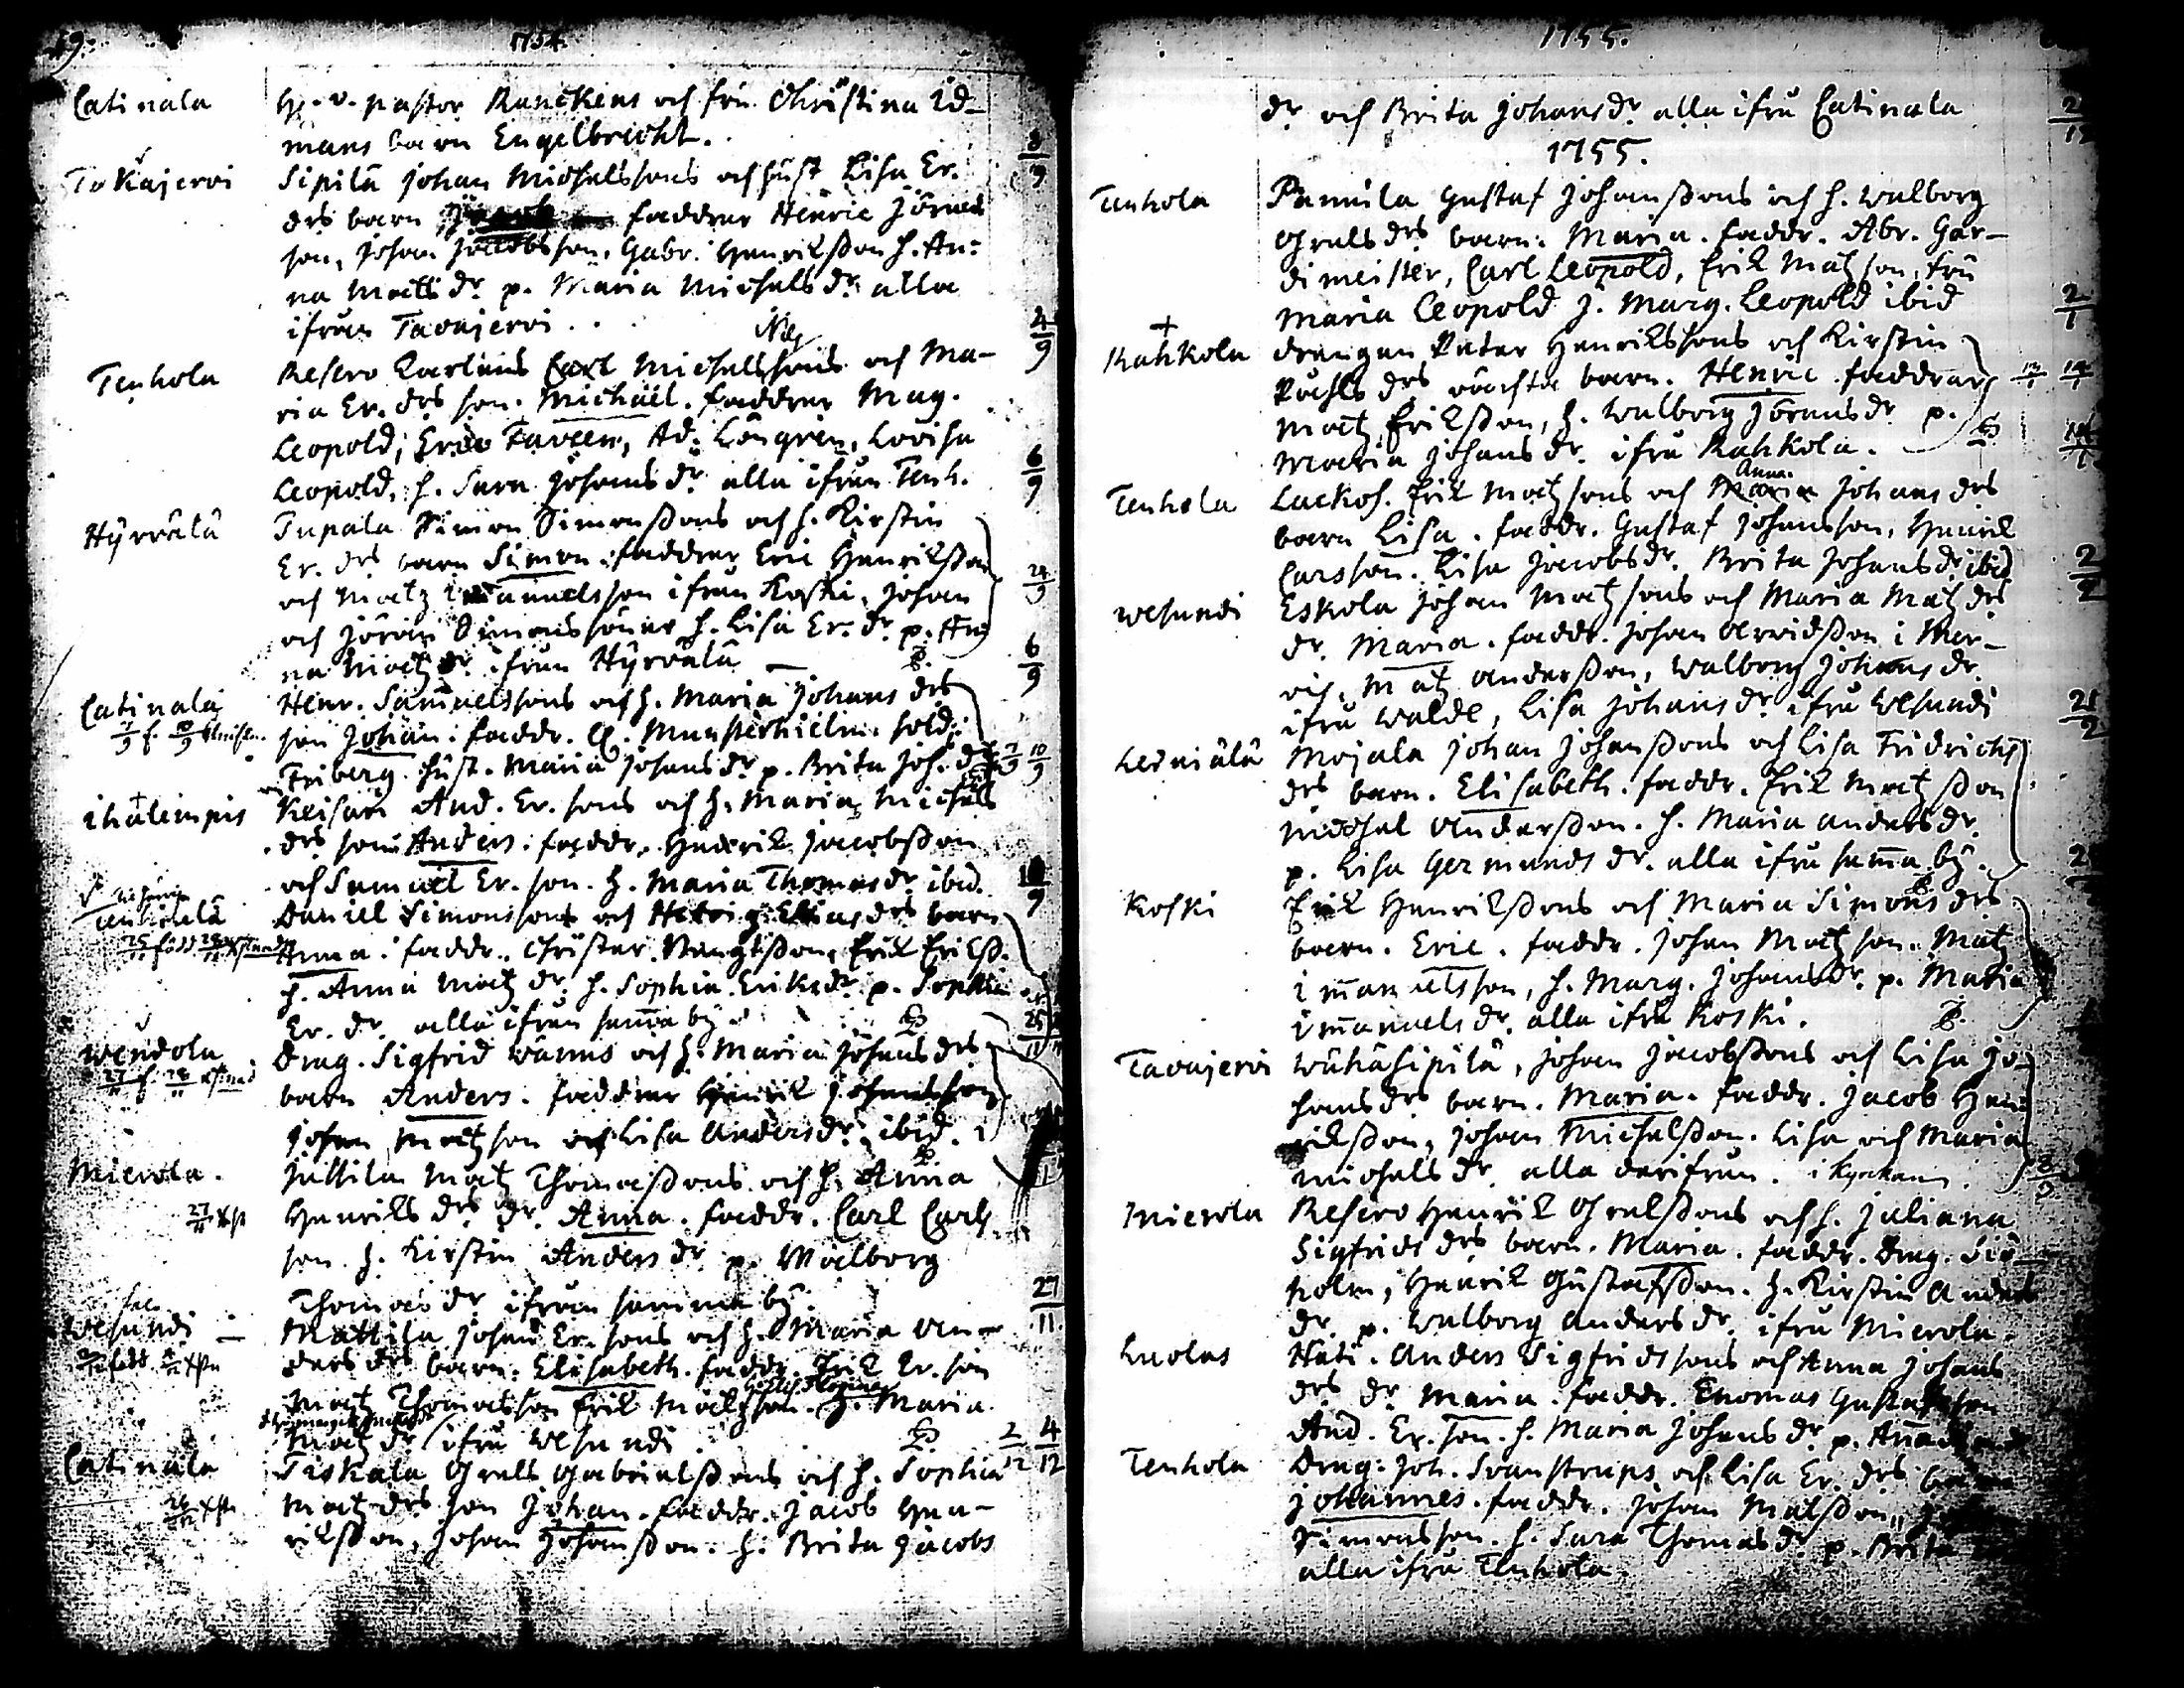 19.
1754.
Catinala H. v. pastor Ranckens och fru Christina Id-
mans barn Engelbricht.
Tavajervi Sipilä Johan Michelssons och hust Lisa Er.
drs barn faddrar Henric Jörans
son, Johan Jacobsson. Gabr. Henriksson h. An-
na Matts dr p. Maria Michels dr alla
ifrån Tavajervi . . 4/9
Tenhola Resero Michelssons och Ma-
ria Er. drs son. Michäël. faddrar Mag.
Leopold, Faveen, Ad. Löngrén, Lovisa
Leopold, h. Sara Johans dr alla ifrån Tenh. 6/9
Hyrvälä Tupala Simon Simonssons och h. Kirstin
Er. drs barn Simon. faddrar Eric Henriksson
och Matz Imanuelsson ifrån Koski, Johan
och Jöran Simonssöner h. Lisa Er. dr p. An
na Matz dr ifrån Hyrvälä 6/9
Catinala Henr. Samuelssons och h. Maria Johans drs
son Johan. faddr. C. Munsterhielm. sold.
Friberg. hust. Maria Johans dr p. Brita Joh. dr 10/9
Ihalempis Keisari And. Er. sons och h. Maria Michels
drs son Anders. faddr. Henrik Jacobsson
och Samuel Er. son. h. Maria Thomas dr ibid.
Daniel Simonssons och drs barn
Anna. faddr. Christer Bengtsson, Erik Erikss.
h. Anna Matz dr h. Sophia Eriks dr p. Sophia
Er. dr alla ifrån samma by
Wendola Drag. Sigfrid Wänns och h. Maria Johans drs
barn Anders. faddrar Henrik Johansson
Johan Matzson och Lisa Anders dr ibid.
Mierola. Juttila Matz Thomassons och h. Anna
Henriks drs dr Anna. faddr. Carl Carls
son h. Kirstin Anders dr p. Walborg
Thomas dr ifrån samma by. 27/11
Wesundi Mattila Johan Er. sons och h. Maria An-
ders drs barn. Elisabeth. faddr. Erik Er. son
Matz Thomasson Erik Matzson. h. Maria
Matz dr ifrå Wesundi 2/12 4/12
Catinala Tiskala Grels Gabrielssons och h. Sophia
Matz drs son Johan. faddr. Jacob Hen-
riksson, Johan Johansson. h. Brita Jacobs
1755.
dr och Brita Johans dr alla ifrå Catinala
1755.
Tenhola Pamula Gustaf Johanssons och h. Walborg
Grels drs barn. Maria. faddr. Abr. Gar-
dimeister, Carl Leopold, Erik Matzson, fru
Maria Leopold J. Marg. Leopold ibid 2/1
Kahkola drengen Peter Henrikssons och Kirstin
Påhls drs oächta barn. Henric. faddrar
Matz Eriksson, h. Walborg Jörans dr p.
Maria Johans dr ifrå Kahkola.
Tenhola Lackos. Erik Matzsons och Anna Johans drs
barn Lisa. faddr. Gustaf Johansson, Henrik
Carsson. Lisa Jacobs dr Brita Johans dr ibid 2/2
Wesundi Eskola Johan Matzsons och Maria Matz drs
dr. Maria. faddr. Johan Arvidsson i Mer-
vis, Matz Andersson, Walborg Johans dr
ifrå Walde, Lisa Johans dr ifrå Wesundi
Lerniälä Mojala Johan Johanssons och Lisa Fridrichs
drs barn. Elisabeth. faddr. Erik Matzson
Michel Andersson. h. Maria Anders dr
p. Lisa Germunds dr alla ifrå sama by.
Koski Erik Henrikssons och Maria Simons drs
barn. Eric. faddr. Johan Matzson. Matz
Imanuelsson, h. Marg. Johans dr p. Maria
Imanuels dr. alla ifrå Koski.
Tavajervi Wähäsipilä, Johan Jacobssons och Lisa Jo-
hans drs barn. Maria. faddr. Jacob Hen-
riksson, Johan Michelsson. Lisa och Maria
Michels dr. alla derifrån. i kyrkan.
Mierola Resero Henrik Grelssons och h. Juliana
Sigfrids drs barn. Maria. faddr. Drag. Siö-
holm, Henrik Gustafsson. h. Kirstin Anders
dr. p. Walborg Anders dr. ifrå Mierola.
Luolas Hati. Anders Sigfridssons och Anna Johans
drs dr Maria. faddr. Thomas Gustafsson
And. Er. son. h. Maria Johans dr p.
Tenhola Drag. Joh. Svanstrups och Lisa Er. drs barn
Johannes. faddr. Johan Matsson,
Simonsson. h. Sara Thomas dr p. Brita
alla ifrå Tenhola.